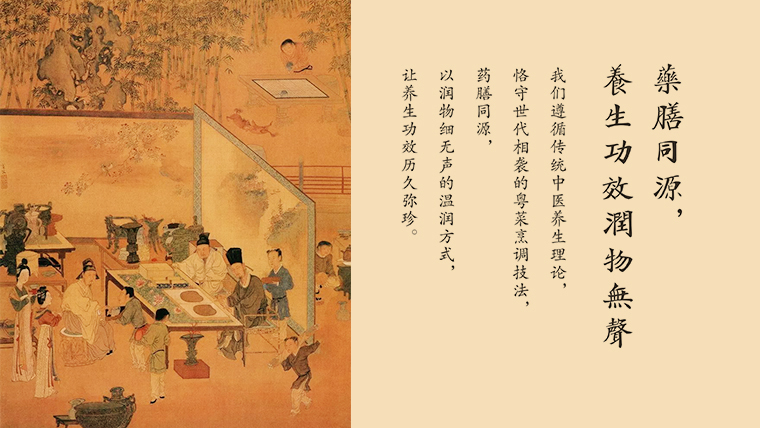 藥膳同源，
養生功效潤物無聲
我们遵循传统中医养生理论，
恪守世代相袭的粤菜烹调技法，
药膳同源，
以润物细无声的温润方式，
让养生功效历久弥珍。